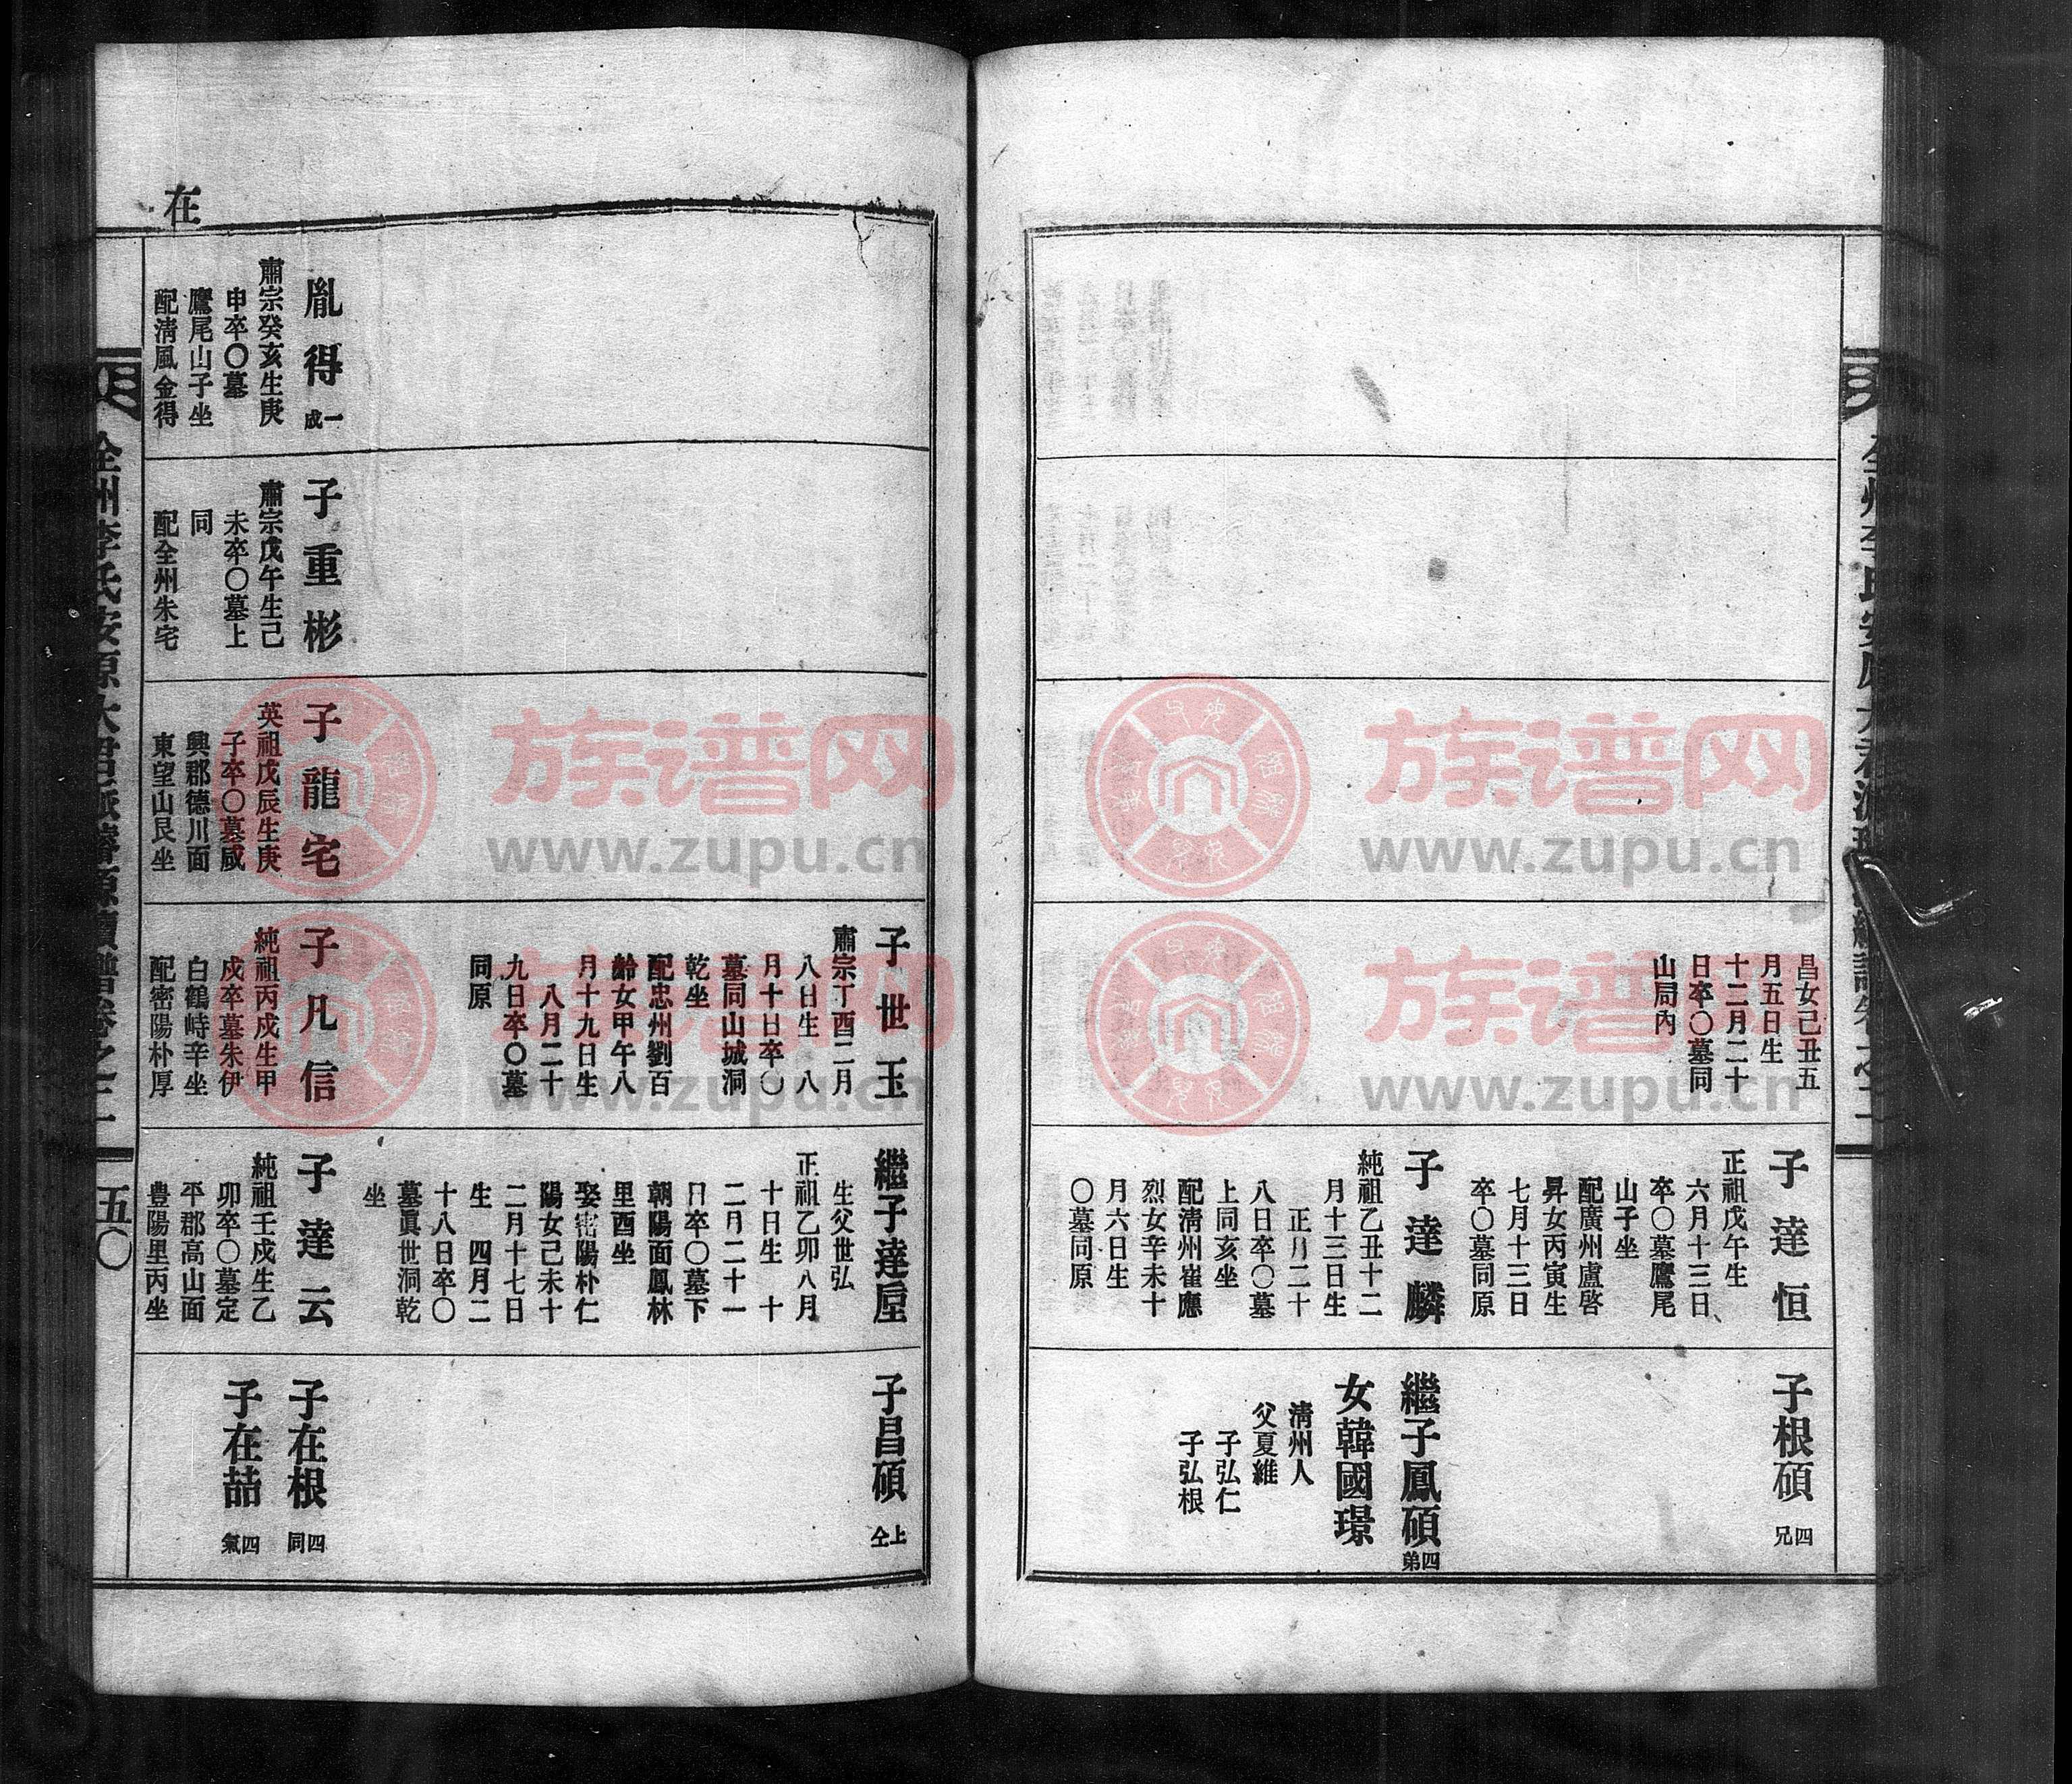 昌女己丑五
月五日生
十二月二十
日卒〇墓同
山局內
子達恒
正祖戊午生
六月十三日
卒〇墓鷹尾
山子坐
配廣州盧啓
昇女丙寅生
七月十三日
卒〇墓同原
子達麟
純祖乙丑十二
月十三日生
正月二十
八日卒〇墓
上同亥坐
配淸州崔應
烈女辛未十
月六日生
〇墓同原
子根碩 四兄
繼子鳳碩 四弟
女韓國璟
淸州人
父夏維
子弘仁
子弘根
子世玉
肅宗丁酉二月
八日生 八
月十日卒〇
墓同山城洞
乾坐
配忠州劉百
齡女甲午八
月十九日生
八月二十
九日卒〇墓
同原
繼子達垕
生父世弘
正祖乙卯八月
十日生 十
二月二十一
日卒〇墓下
朝陽面鳳林
里酉坐
娶密陽朴仁
陽女己未十
二月十七日
生 四月二
十八日卒〇
墓眞世洞乾
坐
子昌碩 上仝
在
胤得 一成
肅宗癸亥生庚
申卒〇墓
鷹尾山子坐
配淸風金得
子重彬
肅宗戊午生己
未卒〇墓上
同
配全州朱宅
子龍宅
英祖戊辰生庚
子卒〇墓咸
興郡德川面
東望山艮坐
子凡信
純祖丙戌生甲
戌卒墓朱伊
白鶴峙辛坐
配密陽朴厚
子達云
純祖壬戌生乙
卯卒〇墓定
平郡高山面
豊陽里丙坐
子在根 四同
子在喆 四氣
全州李氏安原大君派璿源續譜卷之二
五〇
族谱网
www.zupu.cn
族谱网
www.zupu.cn
族谱网
www.zupu.cn
族谱网
www.zupu.cn